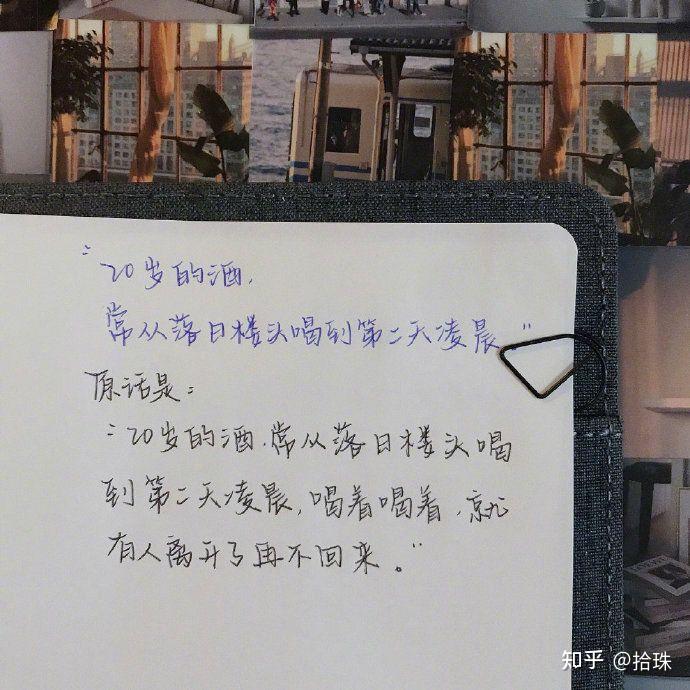 “20岁的酒,
常从落日楼头喝到第二天凌晨”
原话是:
“20岁的酒,常从落日楼头喝
到第二天凌晨,喝着喝着,就
有人离开了再不回来。”
知乎 @拾珠